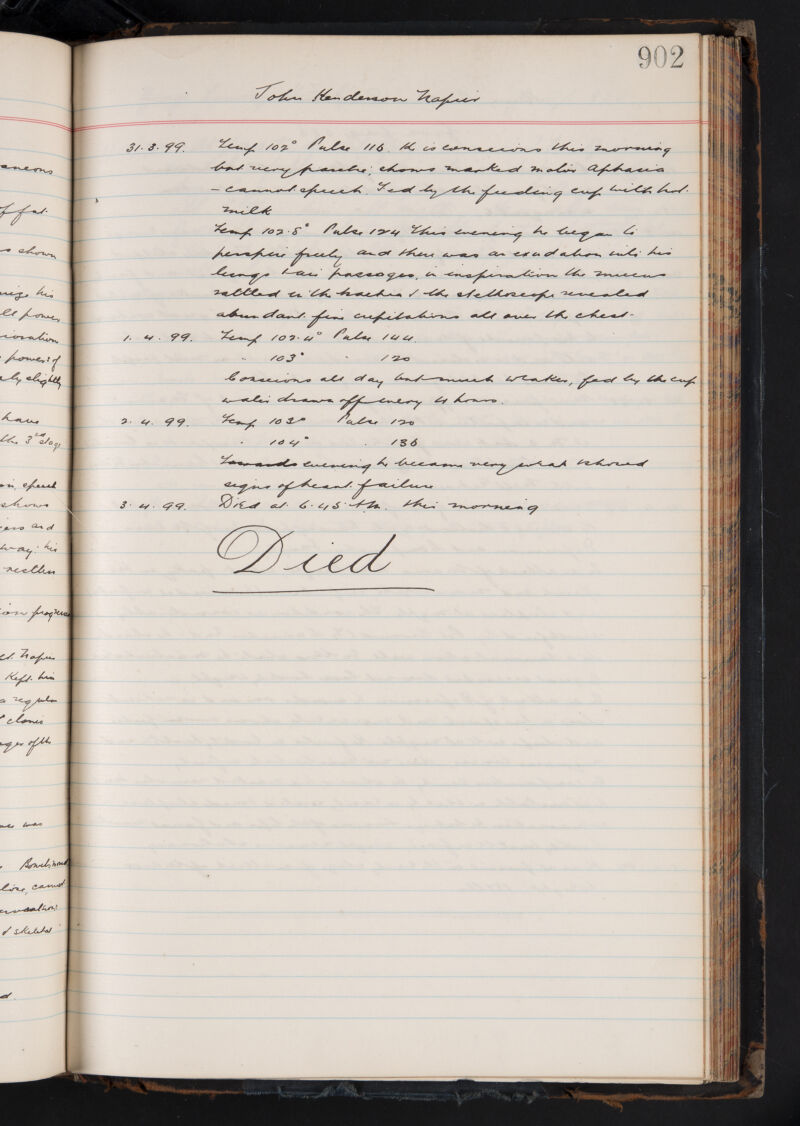 902
John Henderson Napier
31.3.99. Temp 102° Pulse 116. He is conscious this morning
but very passive; shows marked motor Aphasia
- cannot speech. Fed by the feeding cup with hot
milk
Temp 102.8° Pulse 124 This evening he began to
perspire freely and there was an exudation into his
lungs & air passages, in inspiration the mucus
rattled in the trachea & the stethoscope revealed
abundant fine crepitations all over the chest.
1. 4. 99. Temp 102.4° Pulse 144
" 103° " 120
Conscious all day but much weaker, fed by the cup
water drawn off every 4 hours.
2. 4. 99. Temp 103° Pulse 120
" 104° " 136
Towards evening he became very weak & showed
signs of heart failure
3. 4. 99. Died at 6.45 this morning
Died
aneous
of fat.
s shown
his
power
power of
slightly
have
the 3rd stage
speech
shows
and
way: his
restless
progress
Napier
Kept his
a regular
of the
was
cannot
& skeletal
d.